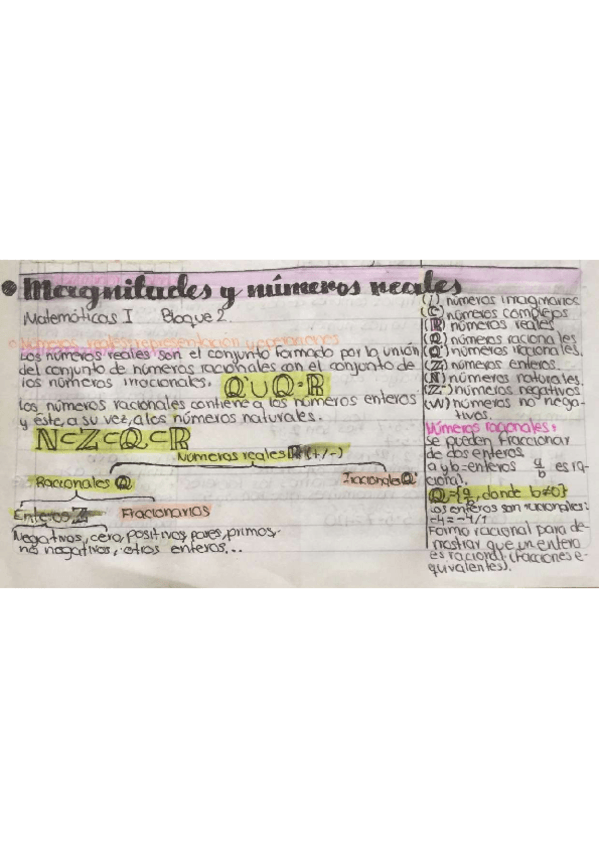 Magnitudes y números reales
Matemáticas I Bloque 2.
Números reales: representación y
Los números reales son el conjunto formado por la unión
del conjunto de números racionales con el conjunto de
los números irracionales. Q'∪Q=R
Los números racionales contiene a los números enteros
y éste, a su vez, a los números naturales.
N⊂Z⊂Q⊂R
Números reales R (+/-)
Racionales Q Iracionales Q'
Enteros Z Fraccionarios
Negativos, cero, positivos, pares, primos,
no nagativos, otros enteros...
(i) números imaginarios
(C) números complejos
(R) números reales
(Q) números racionales
(Q') números irracionales.
(Z) números enteros.
(N) números naturales.
(Z-) números negativos
(W) números no nega-
tivos.
Números racionales:
Se pueden fraccionar
de dos enteros
a y b = enteros a/b es ra-
cional.
Q={a/b, donde b≠0}
Los enteros son racionales:
-4 = -4/1
Forma racional para de-
mostrar que un entero
es racional. (Fracciones e-
quivalentes).